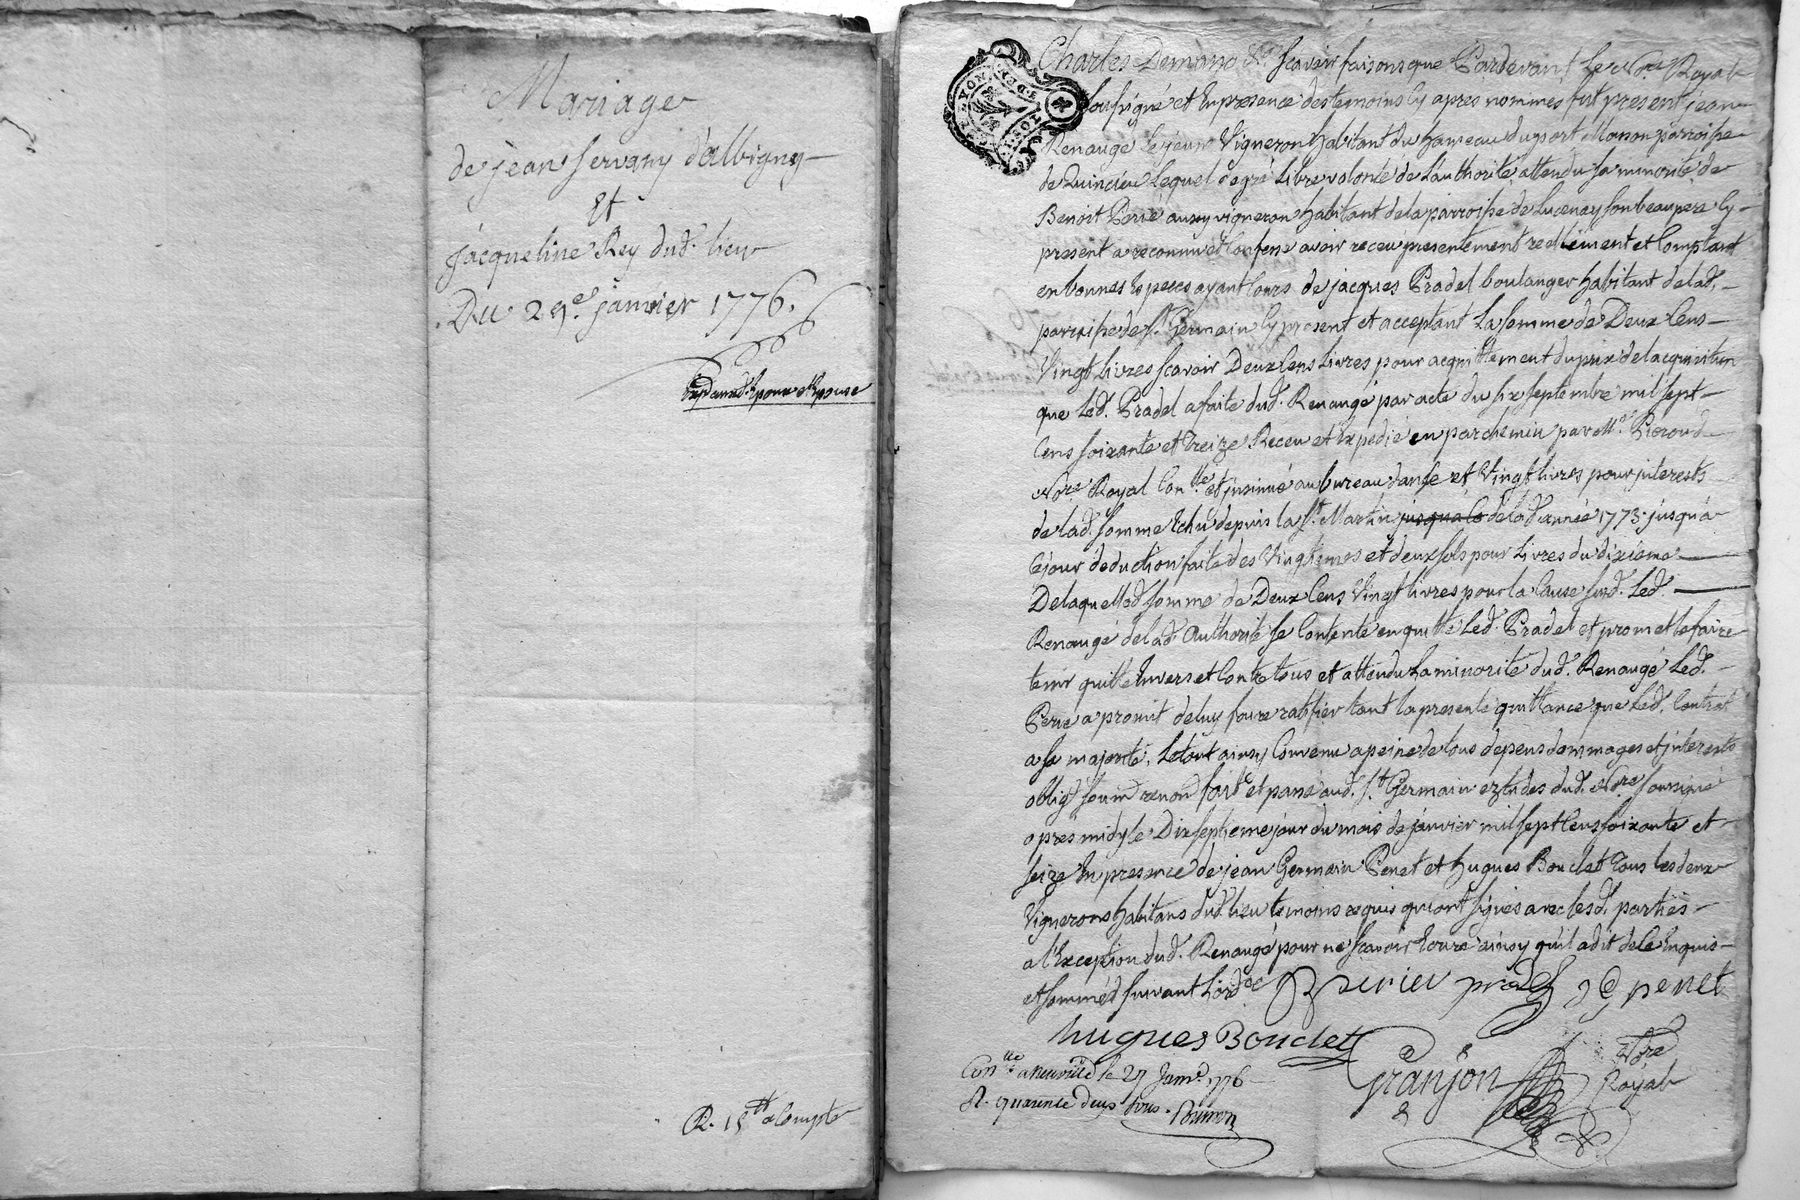 Mariage
de jean Servany d'albigny
Et
jacqueline Rey dud. lieu
Du 29e. janvier 1776.
Expd. aux d. Epoux et Epouse
R. 15tt acompte
Charles Demano &a. Scavoir faisons que Pardevant le Nore. Royal
Soussigné et En presence des temoins Cy apres nommés fut present jean
Renaugé le jeune Vigneron habitant du hameau du port Maron parroisse
de Quincieu Lequel de gré Libre volonté de L'authorité attendu sa minorité de
Benoit Perié aussy vigneron habitant de la parroisse de Lucenay son beaupere Cy
present a reconnu et Confessé avoir receu presentement reellement et Comptant
en bonnes Especes ayant Cours de jacques Pradel boulanger habitant de lad.
parroisse de St. Germain Cy present et acceptant La somme de Deux Cens
Vingt Livres scavoir Deux Cens Livres pour acquittement du prix de lacquisition
que Led. Pradel a faite dud. Renaugé par acte du six septembre mil sept
Cens soixante et treize Receu et Expedié en parchemin par Me. Peroud
Nore. Royal Conllé. et jnsinué au bureau danse et Vingt livres pour jnterests
de lad. somme Echu depuis la St. Martin jusqua Ce de lad. année 1773. jusqu'a
Ce jour deduction faite des Vingtiemes et deux sols pour Livres du dixieme
De laquelle d. somme de Deux Cens Vingt livres pour la Cause susd. Led.
Renaugé de lad. Authorité se Contente en quitte Led. Pradel et promet le faire
tenir quitte Envers et Contre tous et attendu La minorité dud. Renaugé Led.
Perié a promit de luy faire ratifier tant la presente quittance que Led. Contrat
a sa majorité, Le tout ainsy Convenu a peine de tous depens dommages et jnterests
obligt. soumn. renon. fait et passé aud. St. Germain Etudes dud. Nore. soussigné
apres midy le Dix septieme jour du mois de janvier mil sept Cens soixante et
seize En presence de jean Germain Penet et hugues Bouclet Tous les deux
Vignerons habitans dud. lieu temoins requis qui ont signés avec lesd. parties
a l'Exception dud. Renaugé pour ne scavoir Ecrire ainsy qu'il a dit de ce Enquis
et sommé suivant L'ordce. B perier pradel J G penet
hugues Bouclet
Granjon Nore Royal
Conllé. a neuville le 27 Janvr. 1776
R. quarente deux sous.